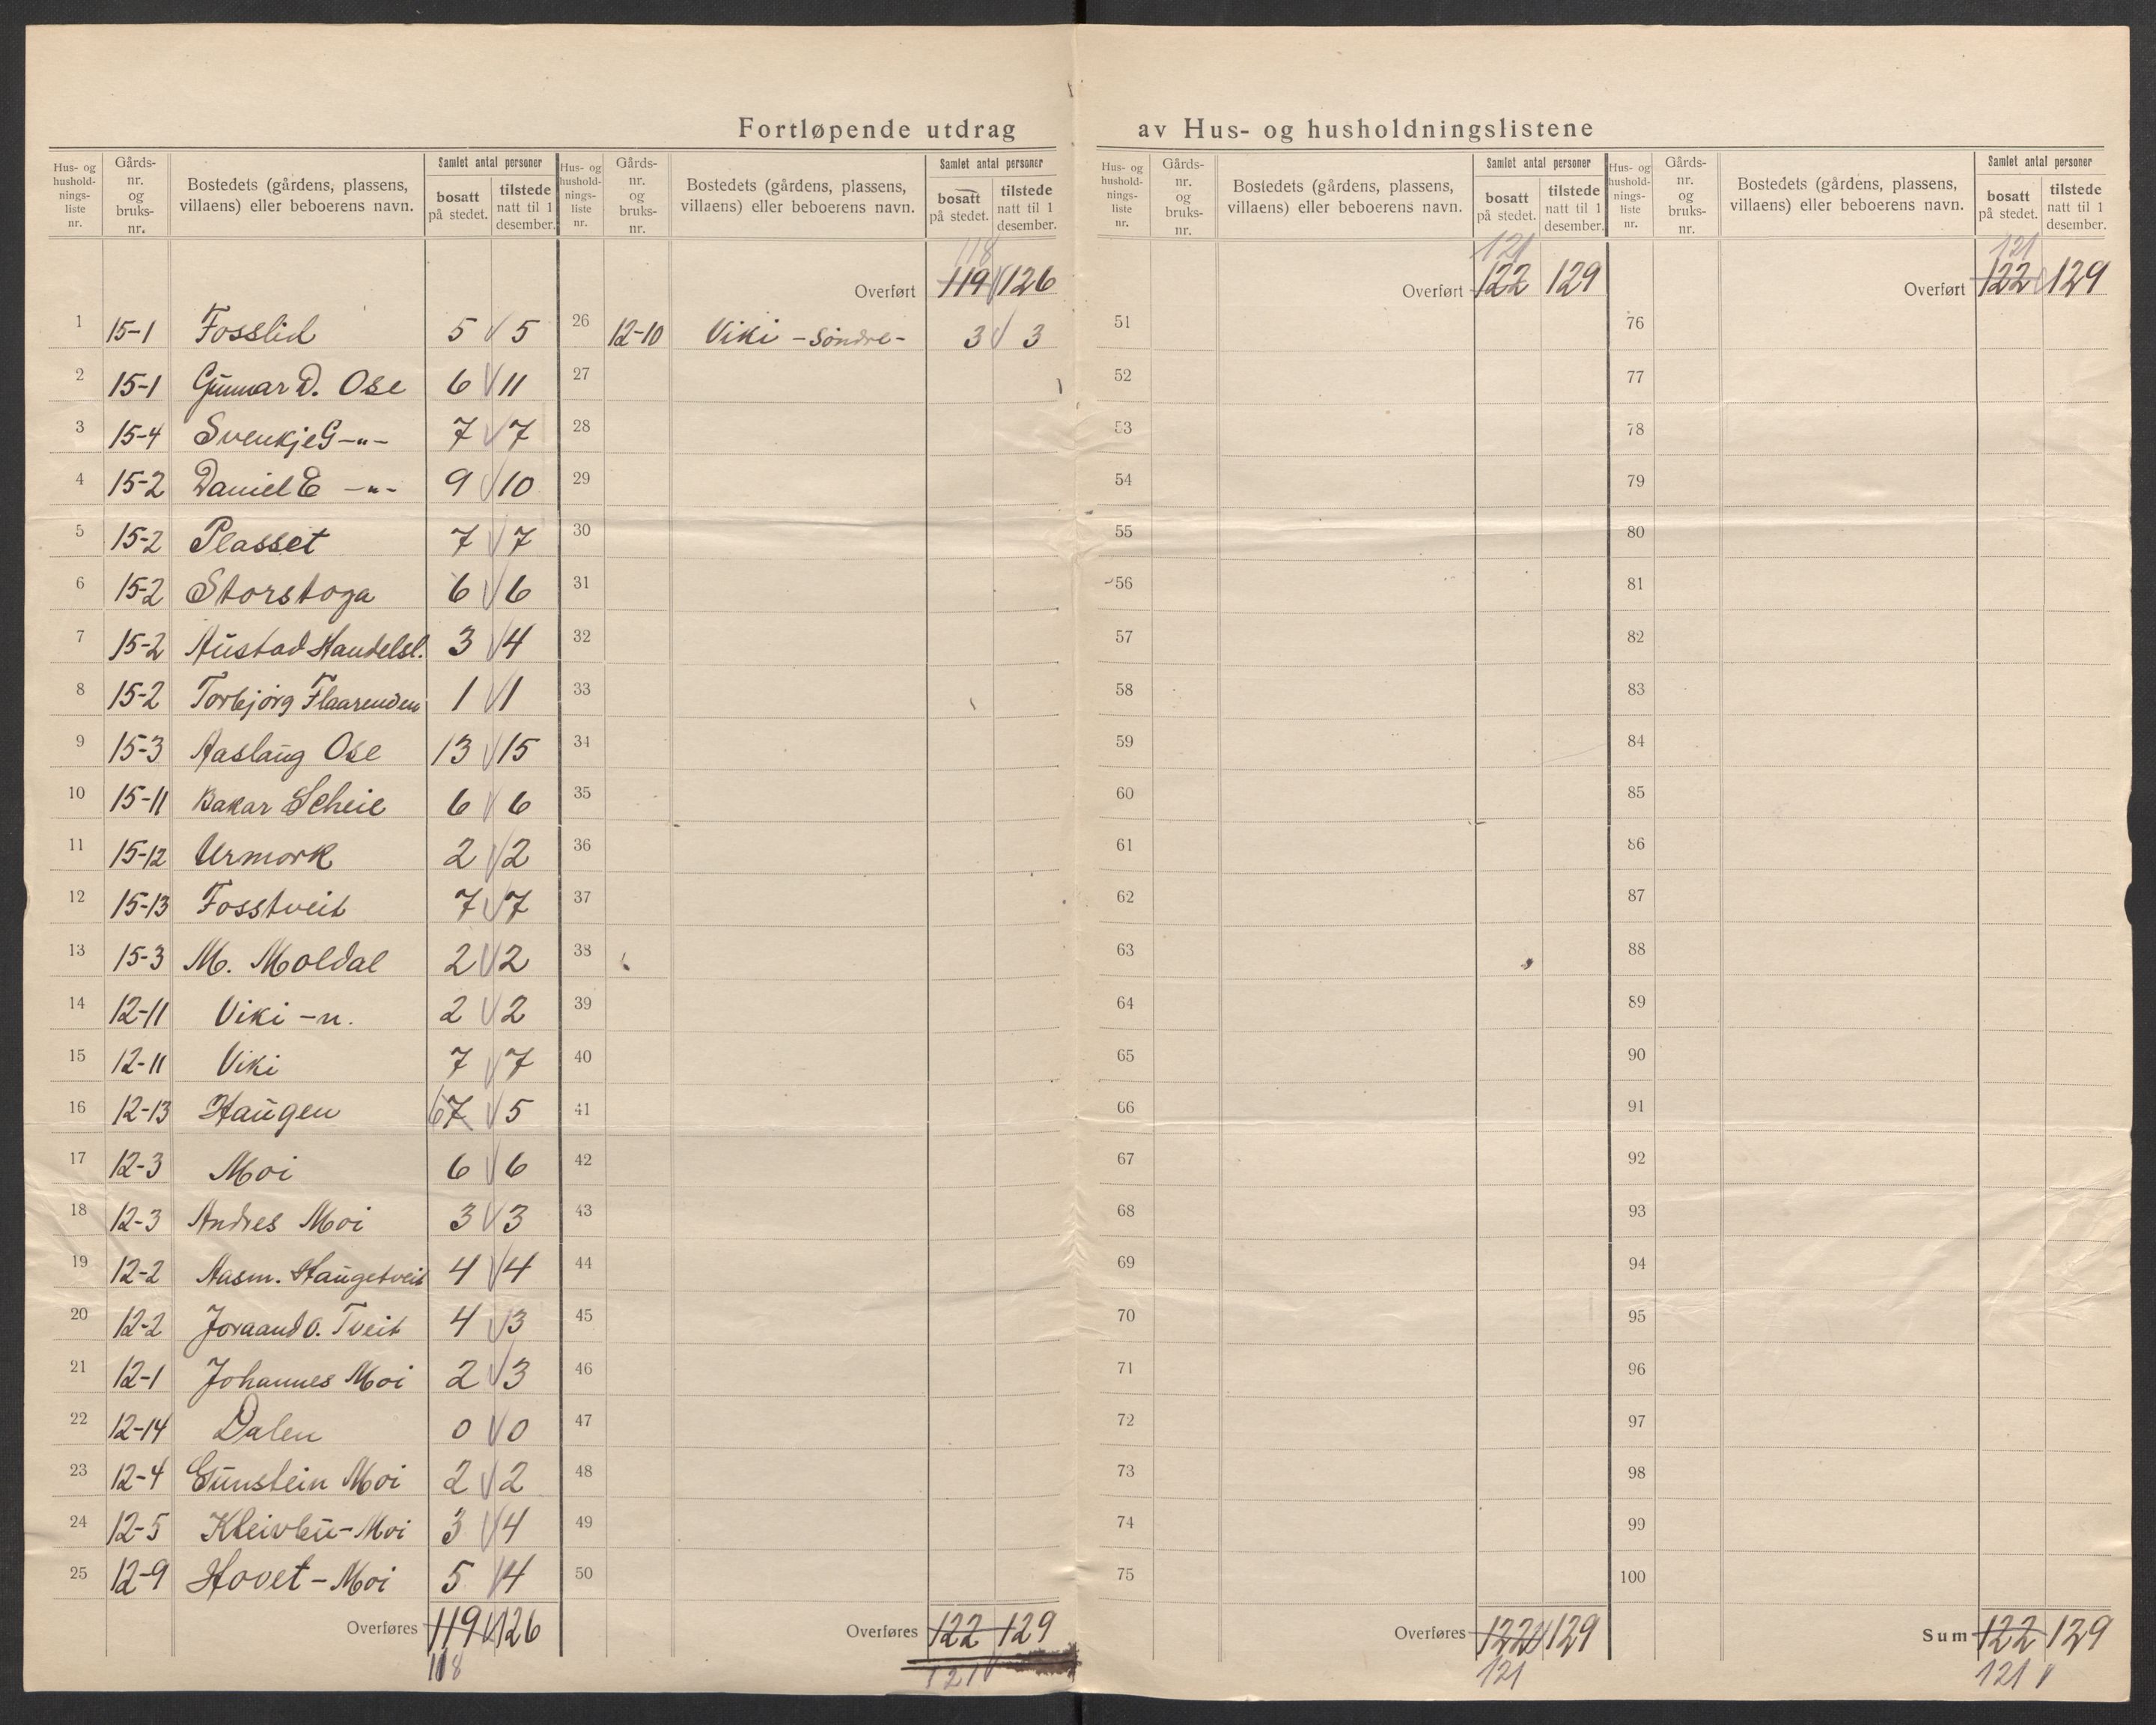 Fortløpende utdrag av Hus- og husholdningslistene
Hus- og husholdnings-liste nr. | Gårds-nr. og bruks-nr. | Bostedets (gårdens, plassens, villaens) eller beboerens navn. | Samlet antal personer | bosatt på stedet. | tilstede natt til 1 desember.
1 15-1 Fosslid 5 5
2 15-1 Gunnar D. Ose 6 11
3 15-4 Svenkje G -"- 7 7
4 15-2 Daniel E -"- 9 10
5 15-2 Plasset 7 7
6 15-2 Storstoga 6 6
7 15-2 Austad Handelsl. 3 4
8 15-2 Torbjörg Flaarenden 1 1
9 15-3 Aaslaug Ose 13 15
10 15-11 Bakar Scheie 6 6
11 15-12 Urmork 2 2
12 15-13 Fosstveit 7 7
13 15-3 M. Moldal 2 2
14 12-11 Viki -n. 2 2
15 12-11 Viki 7 7
16 12-13 Haugen 6 7 5
17 12-3 Moi 6 6
18 12-3 Andres Moi 3 3
19 12-2 Aasm. Haugetveit 4 4
20 12-2 Joraand O. Tveit 4 3
21 12-1 Johannes Moi 2 3
22 12-14 Dalen 0 0
23 12-4 Gunstein Moi 2 2
24 12-5 Kleivbu-Moi 3 4
25 12-9 Hovet-Moi 5 4
Overføres 119 126
118
Hus- og husholdnings-liste nr. | Gårds-nr. og bruks-nr. | Bostedets (gårdens, plassens, villaens) eller beboerens navn. | Samlet antal personer | bosatt på stedet. | tilstede natt til 1 desember.
118
Overført 119 126
26 12-10 Viki -Söndre- 3 3
27
28
29
30
31
32
33
34
35
36
37
38
39
40
41
42
43
44
45
46
47
48
49
50
Overføres 122 129
121
Hus- og husholdnings-liste nr. | Gårds-nr. og bruks-nr. | Bostedets (gårdens, plassens, villaens) eller beboerens navn. | Samlet antal personer | bosatt på stedet. | tilstede natt til 1 desember.
121
Overført 122 129
51
52
53
54
55
56
57
58
59
60
61
62
63
64
65
66
67
68
69
70
71
72
73
74
75
Overføres 122 129
121
Hus- og husholdnings-liste nr. | Gårds-nr. og bruks-nr. | Bostedets (gårdens, plassens, villaens) eller beboerens navn. | Samlet antal personer | bosatt på stedet. | tilstede natt til 1 desember.
121
Overført 122 129
76
77
78
79
80
81
82
83
84
85
86
87
88
89
90
91
92
93
94
95
96
97
98
99
100
Sum 122 129
121